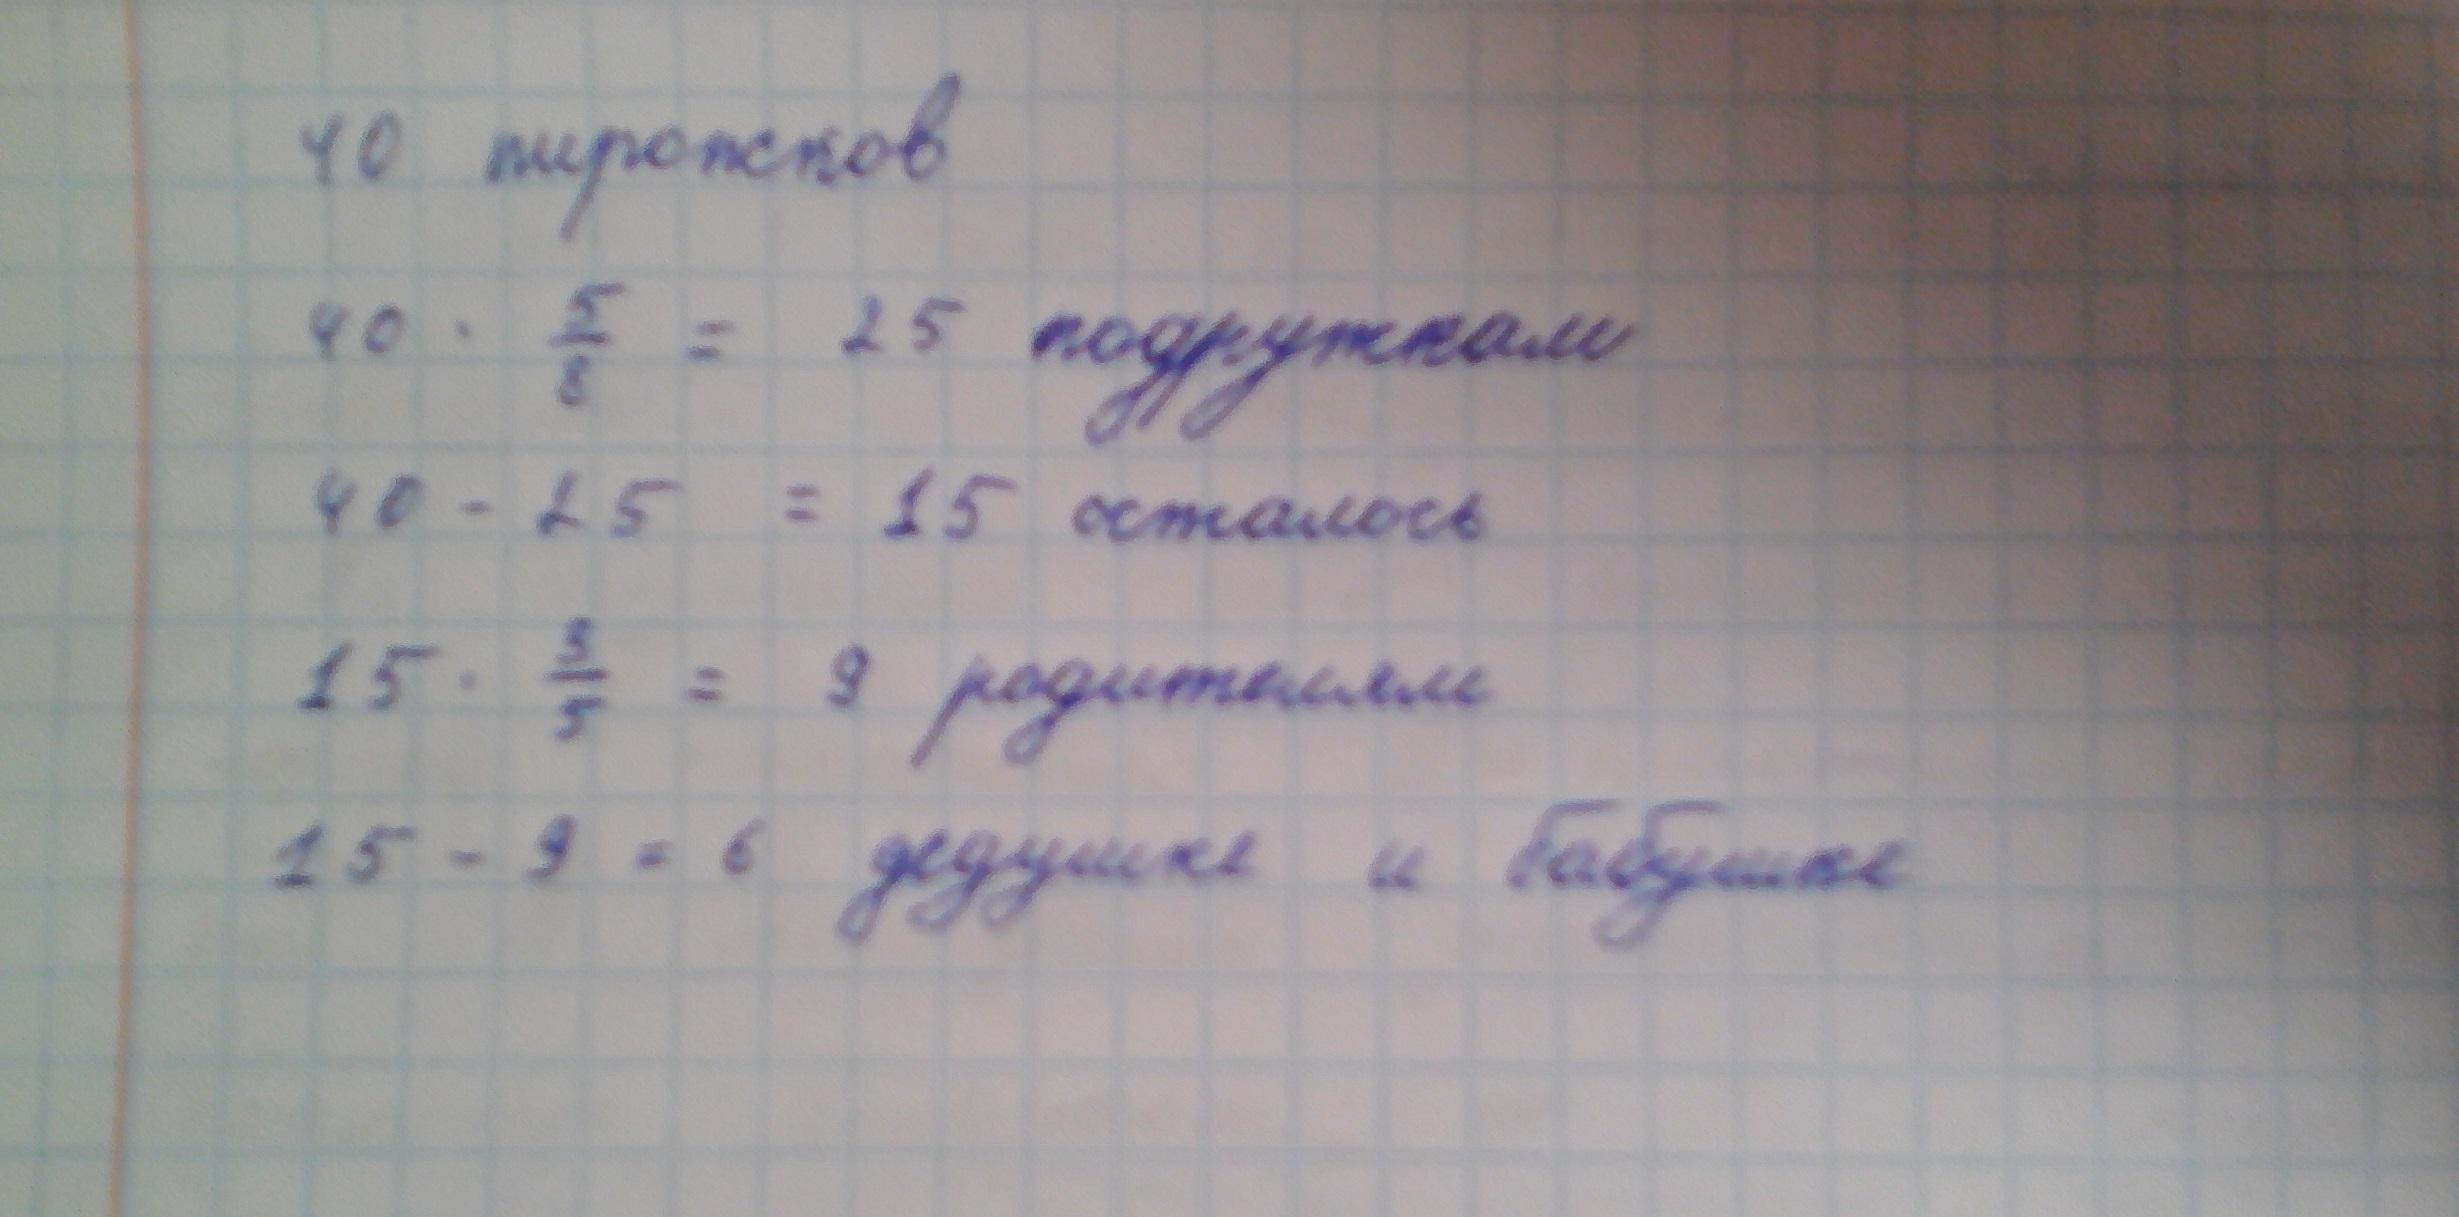 40 пирожков
40 · 5/8 = 25 подружкам
40 - 25 = 15 осталось
15 · 3/5 = 9 родителям
15 - 9 = 6 дедушке и бабушке